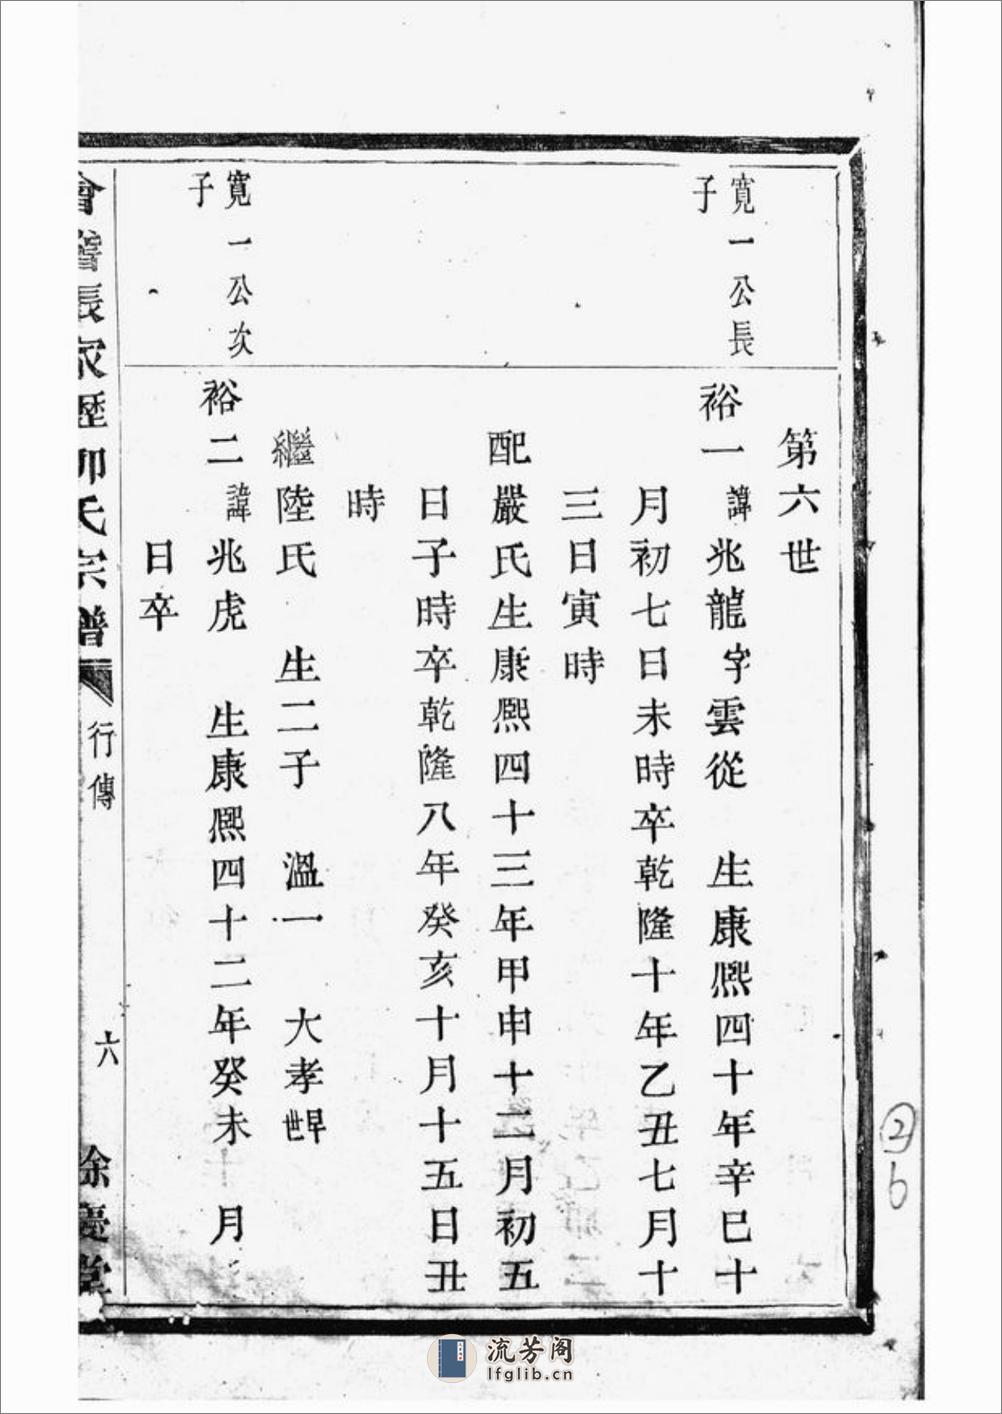 第六世
寬一公長
子
裕一諱兆龍字雲從　生康熙四十年辛巳十
月初七日未時卒乾隆十年乙丑七月十
三日寅時
配嚴氏生康熙四十三年甲申十二月初五
日子時卒乾隆八年癸亥十月十五日丑
時
繼陸氏　生二子　溫一　大孝早世
寬一公次
子
裕二諱兆虎　生康熙四十二年癸未　月
日卒
會稽長家歷卯氏宗譜　行傳　六　餘慶堂
②6
流芳阁
lfglib.cn